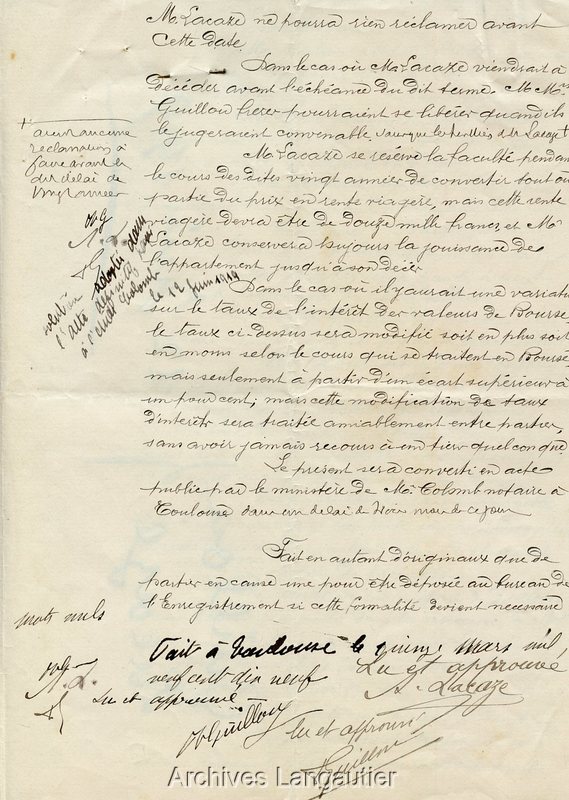 M. Lacaze ne pourra rien réclamer avant
cette date.
Dans le cas où M. Lacaze viendrait à
décéder avant l'échéance du dit terme. M. Mrs
Guillou frères pourraient se libérer quand ils
le jugeraient convenable sans que les héritiers de M. Lacaze +
+ aient aucune
réclamation à
faire avant le
dit délai de
vingt années
M. Lacaze se réserve la faculté pendant
le cours des dites vingt année de convertir tout ou
partie du prix en rente viagère, mais cette rente
viagère devra être de douze mille francs et M.
Lacaze conservera toujours la jouissance de
l'appartement jusqu'à son décès
l'acte
à l'étude Colomb
le 12 Juin 1919
Dans le cas où il y aurait une variation
sur le taux de l'intérêt des valeurs de Bourse,
le taux ci-dessus sera modifié soit en plus soit
en moins selon le cours qui se traitent en Bourse
mais seulement à partir d'un écart supérieur à
un pour cent; mais cette modification de taux
d'intérêts sera traitée amiablement entre parties,
sans avoir jamais recours à un tiers quelconque
Le présent sera converti en acte
public par le ministère de M. Colomb notaire à
Toulouse dans un délai de trois mois de ce jour
Fait en autant d'originaux que de
parties en cause une pour être déposée au bureau de
l'Enregistrement si cette formalité devient nécessaire
mots nuls
Fait à Toulouse le quinze Mars mil
neuf cent dix neuf
Lu et approuvé
A. Lacaze
Lu et approuvé
Guillou
Lu et approuvé
Guillou
Archives Langautier